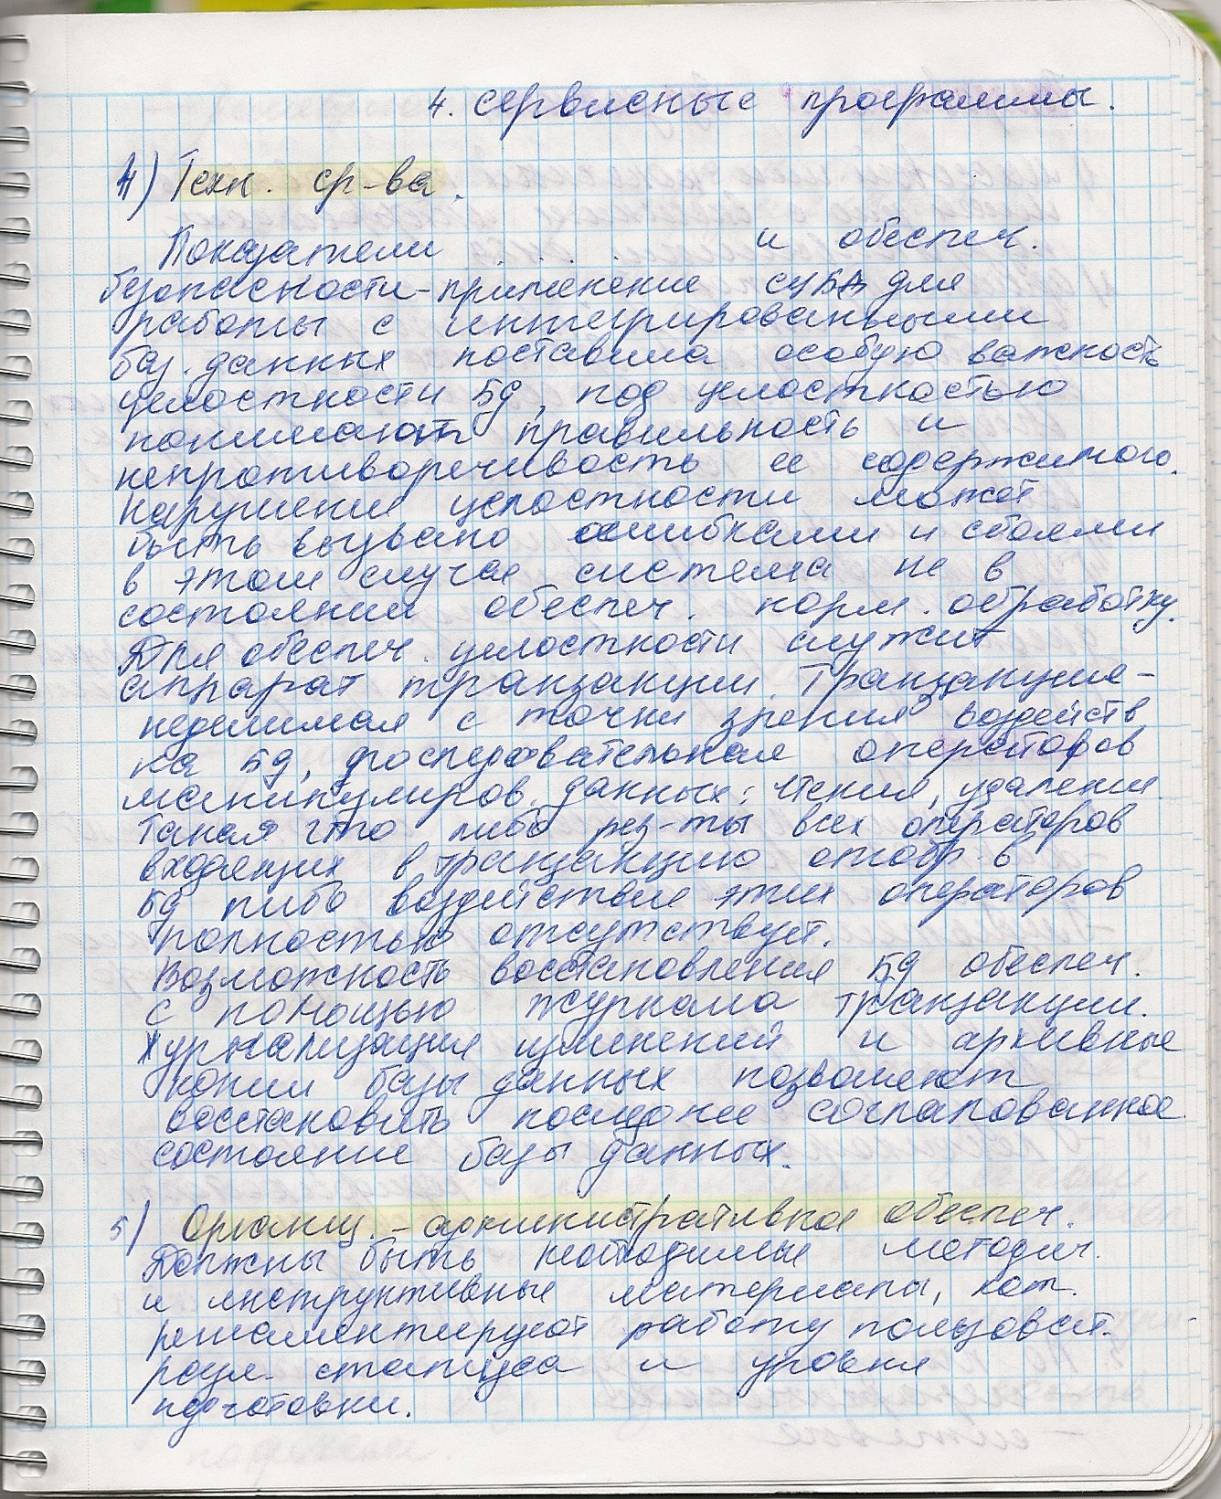 4. сервисные программы.
4) Техн. ср-ва.
Показатели и обеспеч.
безопасности - применение СУБД для
работы с интегрированными
баз. данных поставила особую важность
целостности БД, под целостностью
понимают правильность и
непротиворечивость ее содержимого.
Нарушение целостности может
быть вызвано ошибками и сбоями
в этом случае система не в
состоянии обеспеч. норм. обработку.
Для обеспеч. целостности служит
аппарат транзакции. Транзакция -
неделимая с точки зрения воздейств
на БД, последовательная операторов
манипулиров. данных: чтения, удаления.
Такая что либо рез-ты всех операторов
входящих в транзакцию отобр. в
БД либо воздействие этих операторов
полностью отсутствует.
Возможность восстановления БД обеспеч.
с помощью журнала транзакции.
Журнализация изменений и архивные
копии базы данных позволяют
восстановить последнее согласованное
состояние базы данных.
5) Организ. - административное обеспеч.
Должны быть необходимые методич.
и инструктивные материалы, кот.
регламентируют работу пользоват.
разл. статуса и уровня
подготовки.